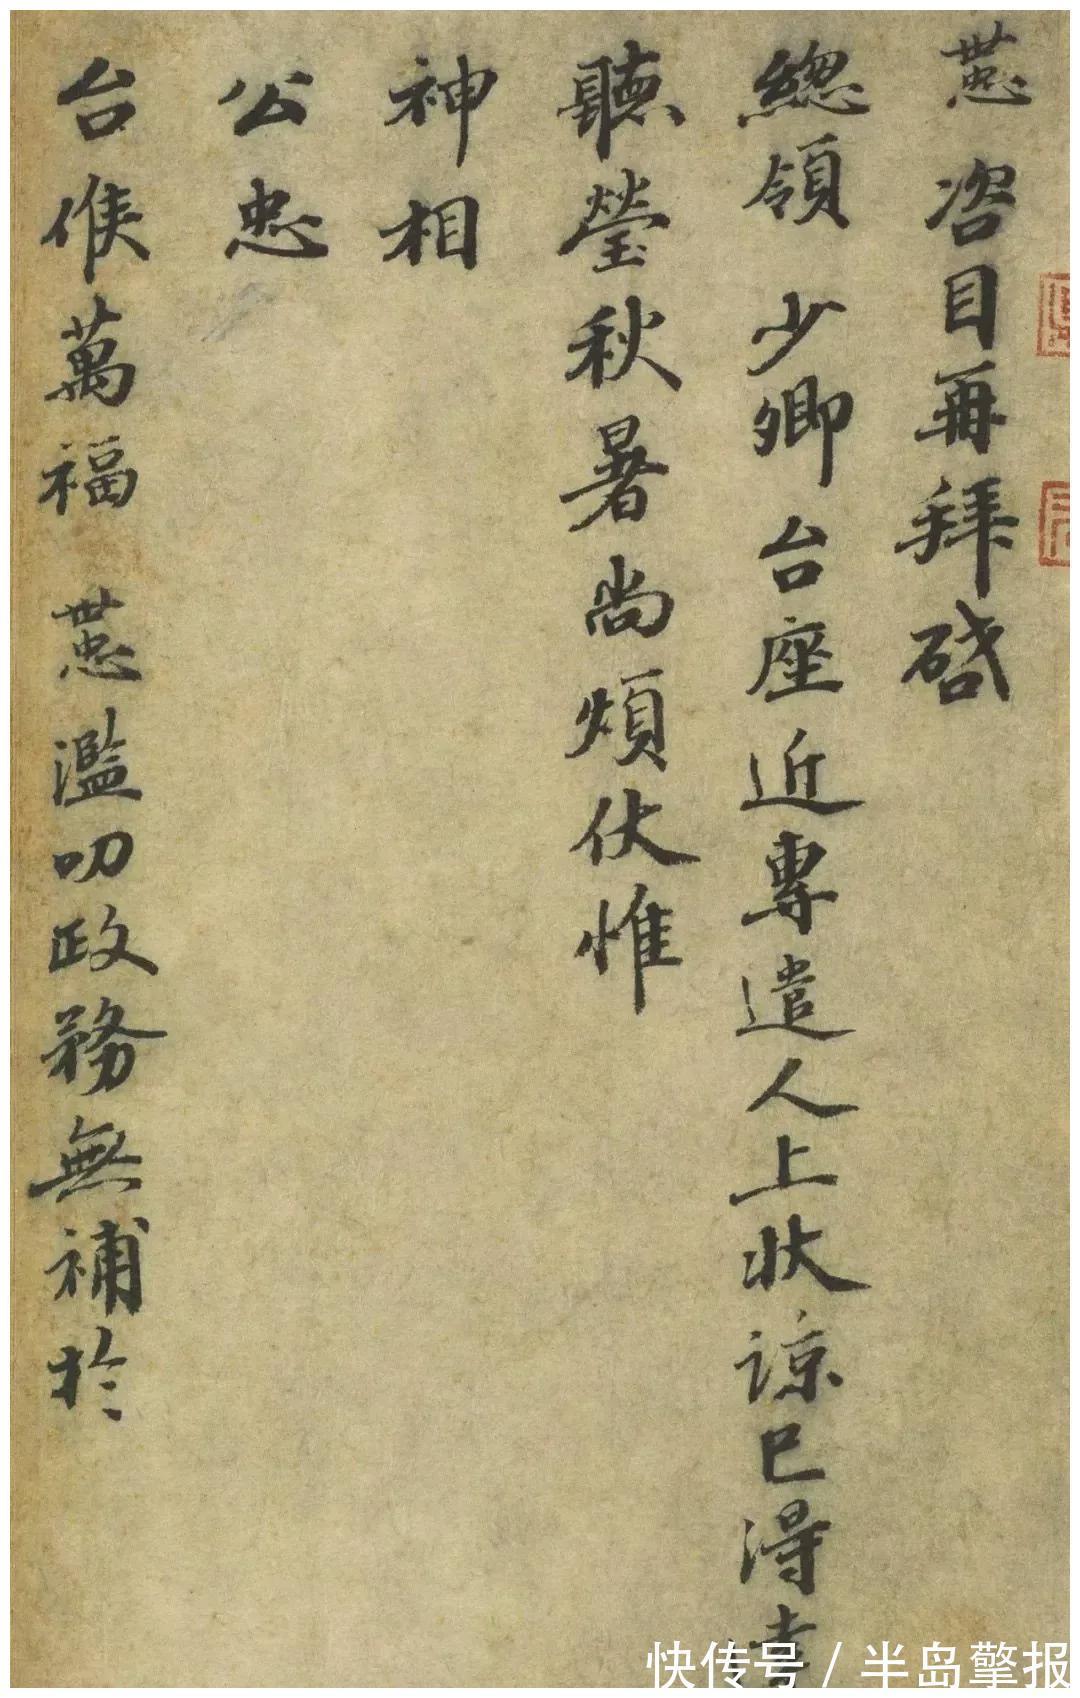 咨目再拜啓
總領 少卿 台座近專遣人上狀諒已得
聽瑩秋暑尚煩伏惟
神相
公忠
台候萬福 濫叨政務無補於
快传号 / 半岛擎报